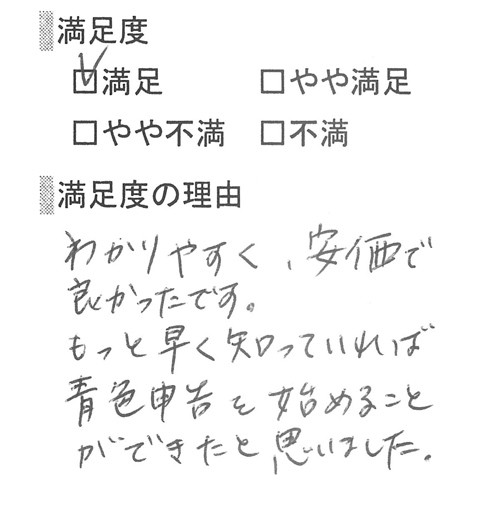 満足度
☑満足 □やや満足
□やや不満 □不満
満足度の理由
わかりやすく、安価で
良かったです。
もっと早く知っていれば
青色申告を始めること
ができたと思いました。